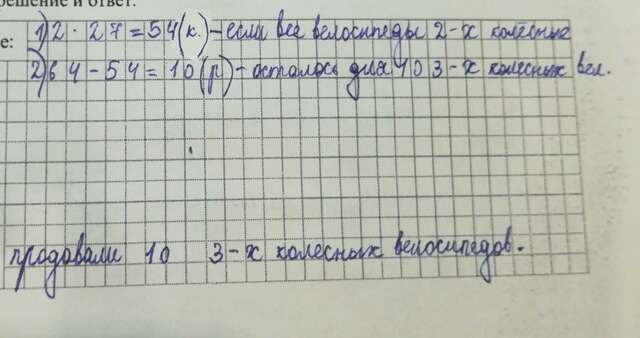 решение и ответ:
е: 1) 2 · 27 = 54 (к.) - если все велосипеды 2-х колёсные
2) 64 - 54 = 10 (р) - осталось для 10 3-х колесных вел.
продавали 10 3-х колесных велосипедов.